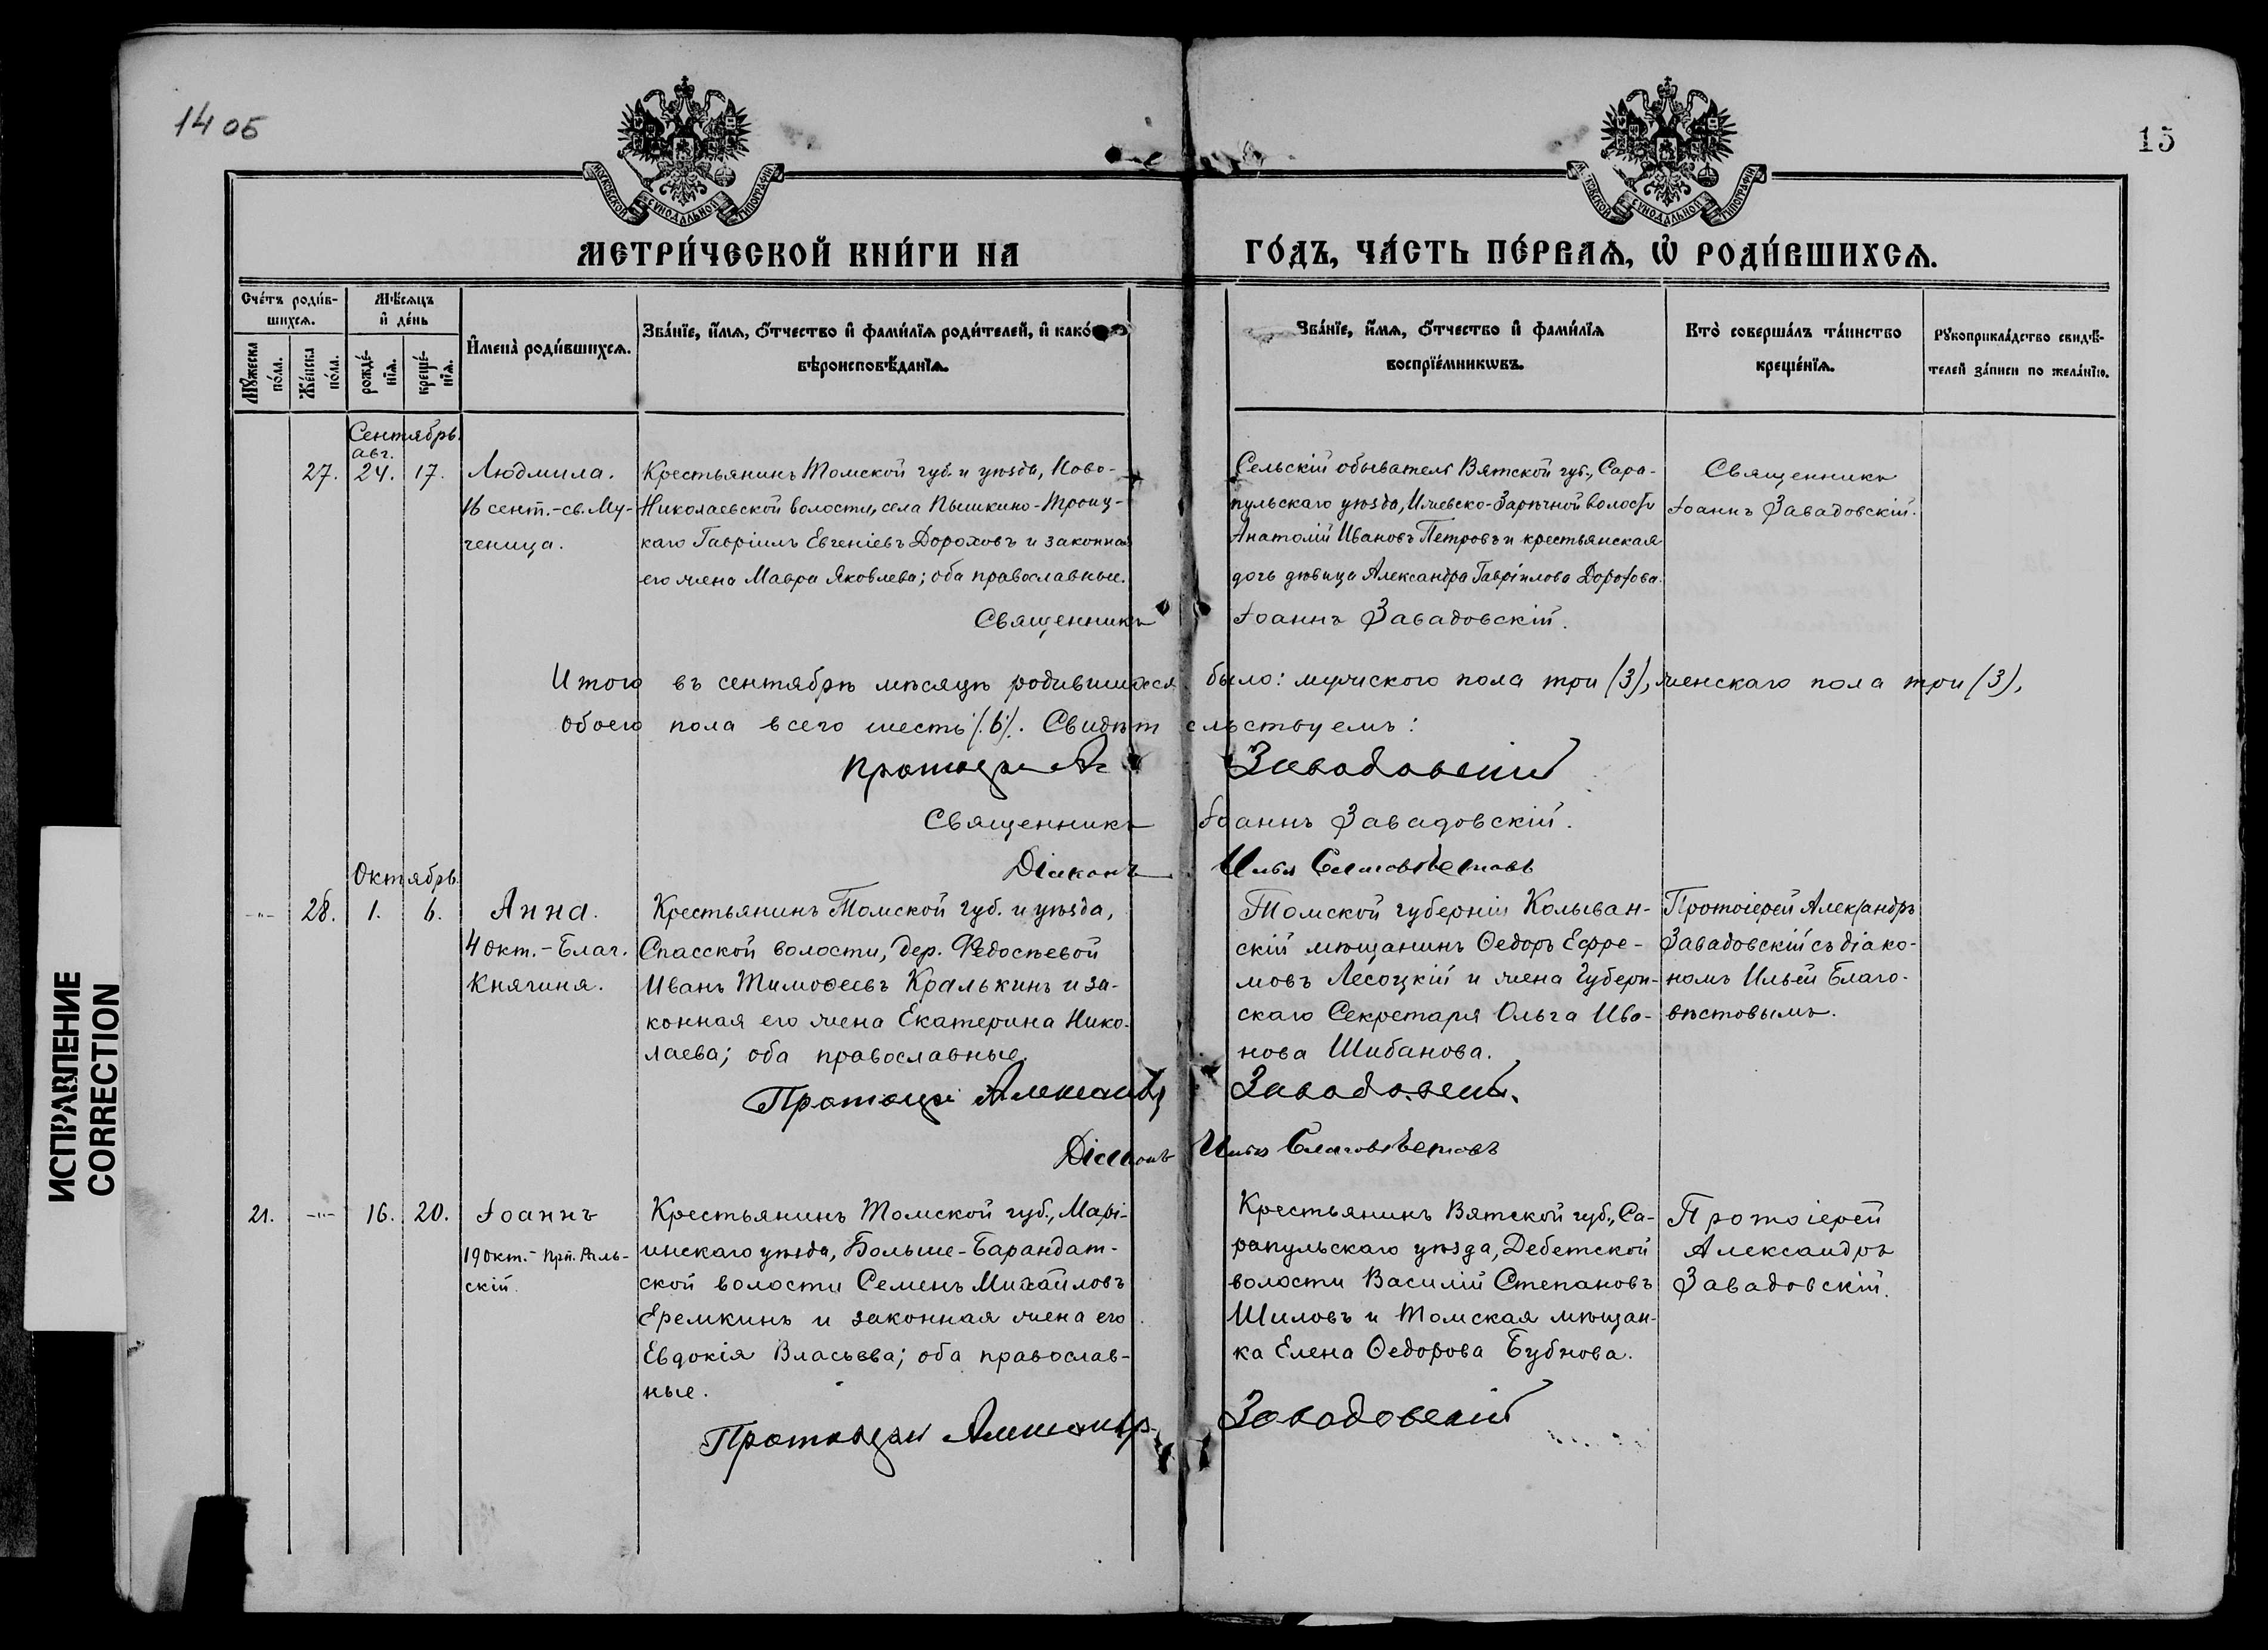 14 об
15
МОСКОВСКОЙ СѴНОДАЛЬНОЙ ТИПОГРАФІИ
СѴНОДАЛЬНОЙ ТИПОГРАФІИ
МЕТРИ́ЧЕСКОЙ КНИ́ГИ НА ГО́ДЪ, ЧА́СТЬ ПЕ́РВАѦ, Ѡ҆ РОДИ́ВШИХСѦ.
Сче́тъ роди́в-
шихсѧ.
Мѣ́сѧцъ
и҆ де́нь
Мꙋ́жеска
по́ла.
Же́нска
по́ла.
рожде́-
нїѧ.
креще́-
нїѧ.
И҆мена̀ роди́вшихсѧ.
Зва́нїе, и҆́мѧ, ѻ҆́тчество и҆ фами́лїѧ роди́телей, и҆ како́
вѣроисповѣ́данїѧ.
Зва́нїе, и҆́мѧ, ѻ҆́тчество и҆ фами́лїѧ
воспрїе́мникѡвъ.
Кто̀ соверша́лъ та́инство
креще́нїѧ.
Рꙋкоприкла́дство свидѣ́-
телей за́писи по жела́нїю.
Сентябрь.
авг.
27. 24. 17.
Людмила.
16 сент.-св. Му-
ченица.
Крестьянинъ Томской губ. и уѣзда, Ново-
Николаевской волости, села Пышкино-Троиц-
каго Гавріилъ Евгеніевъ Дороховъ и законная
его жена Мавра Яковлева; оба православные.
Сельскій обыватель Вятской губ., Сара-
пульскаго уѣзда, Ижевско-Зарѣчной волости
Анатолій Ивановъ Петровъ и крестьянская
дочь дѣвица Александра Гавріилова Дорохова.
Священникъ
Іоаннъ Завадовскій.
Священникъ Іоаннъ Завадовскій.
Итого въ сентябрѣ мѣсяцѣ родившихся было: мужского пола три (3), женскаго пола три (3),
обоего пола всего шесть (6). Свидѣтельствуемъ:
Протоіерей Завадовскій
Священникъ Іоаннъ Завадовскій.
Діаконъ Илья Благовѣстовъ
Октябрь.
-"- 28. 1. 6.
Анна.
4 окт.-Благ.
Княгиня.
Крестьянинъ Томской губ. и уѣзда,
Спасской волости, дер. Федосѣевой
Иванъ Тимоѳеевъ Кралькинъ и за-
конная его жена Екатерина Нико-
лаева; оба православные.
Томской губерніи Колыван-
скій мѣщанинъ Ѳедоръ Ефре-
мовъ Лесоцкій и жена Губерн-
скаго Секретаря Ольга Ива-
нова Шибанова.
Протоіерей Александръ
Завадовскій съ діако-
номъ Ильей Благо-
вѣстовымъ.
Протоіерей Александръ Завадовскій.
Діаконъ Илья Благовѣстовъ
21. -"- 16. 20.
Іоаннъ
19 окт.- прп. Рыль-
скій.
Крестьянинъ Томской губ., Марі-
инскаго уѣзда, Больше-Барандат-
ской волости Семенъ Михайловъ
Еремкинъ и законная жена его
Евдокія Власьева; оба православ-
ные.
Крестьянинъ Вятской губ., Са-
рапульскаго уѣзда, Дебетской
волости Василій Степановъ
Шиловъ и Томская мѣщан-
ка Елена Ѳедорова Бубнова.
Протоіерей
Александръ
Завадовскій.
Протоіерей Александръ Завадовскій
ИСПРАВЛЕНИЕ
CORRECTION